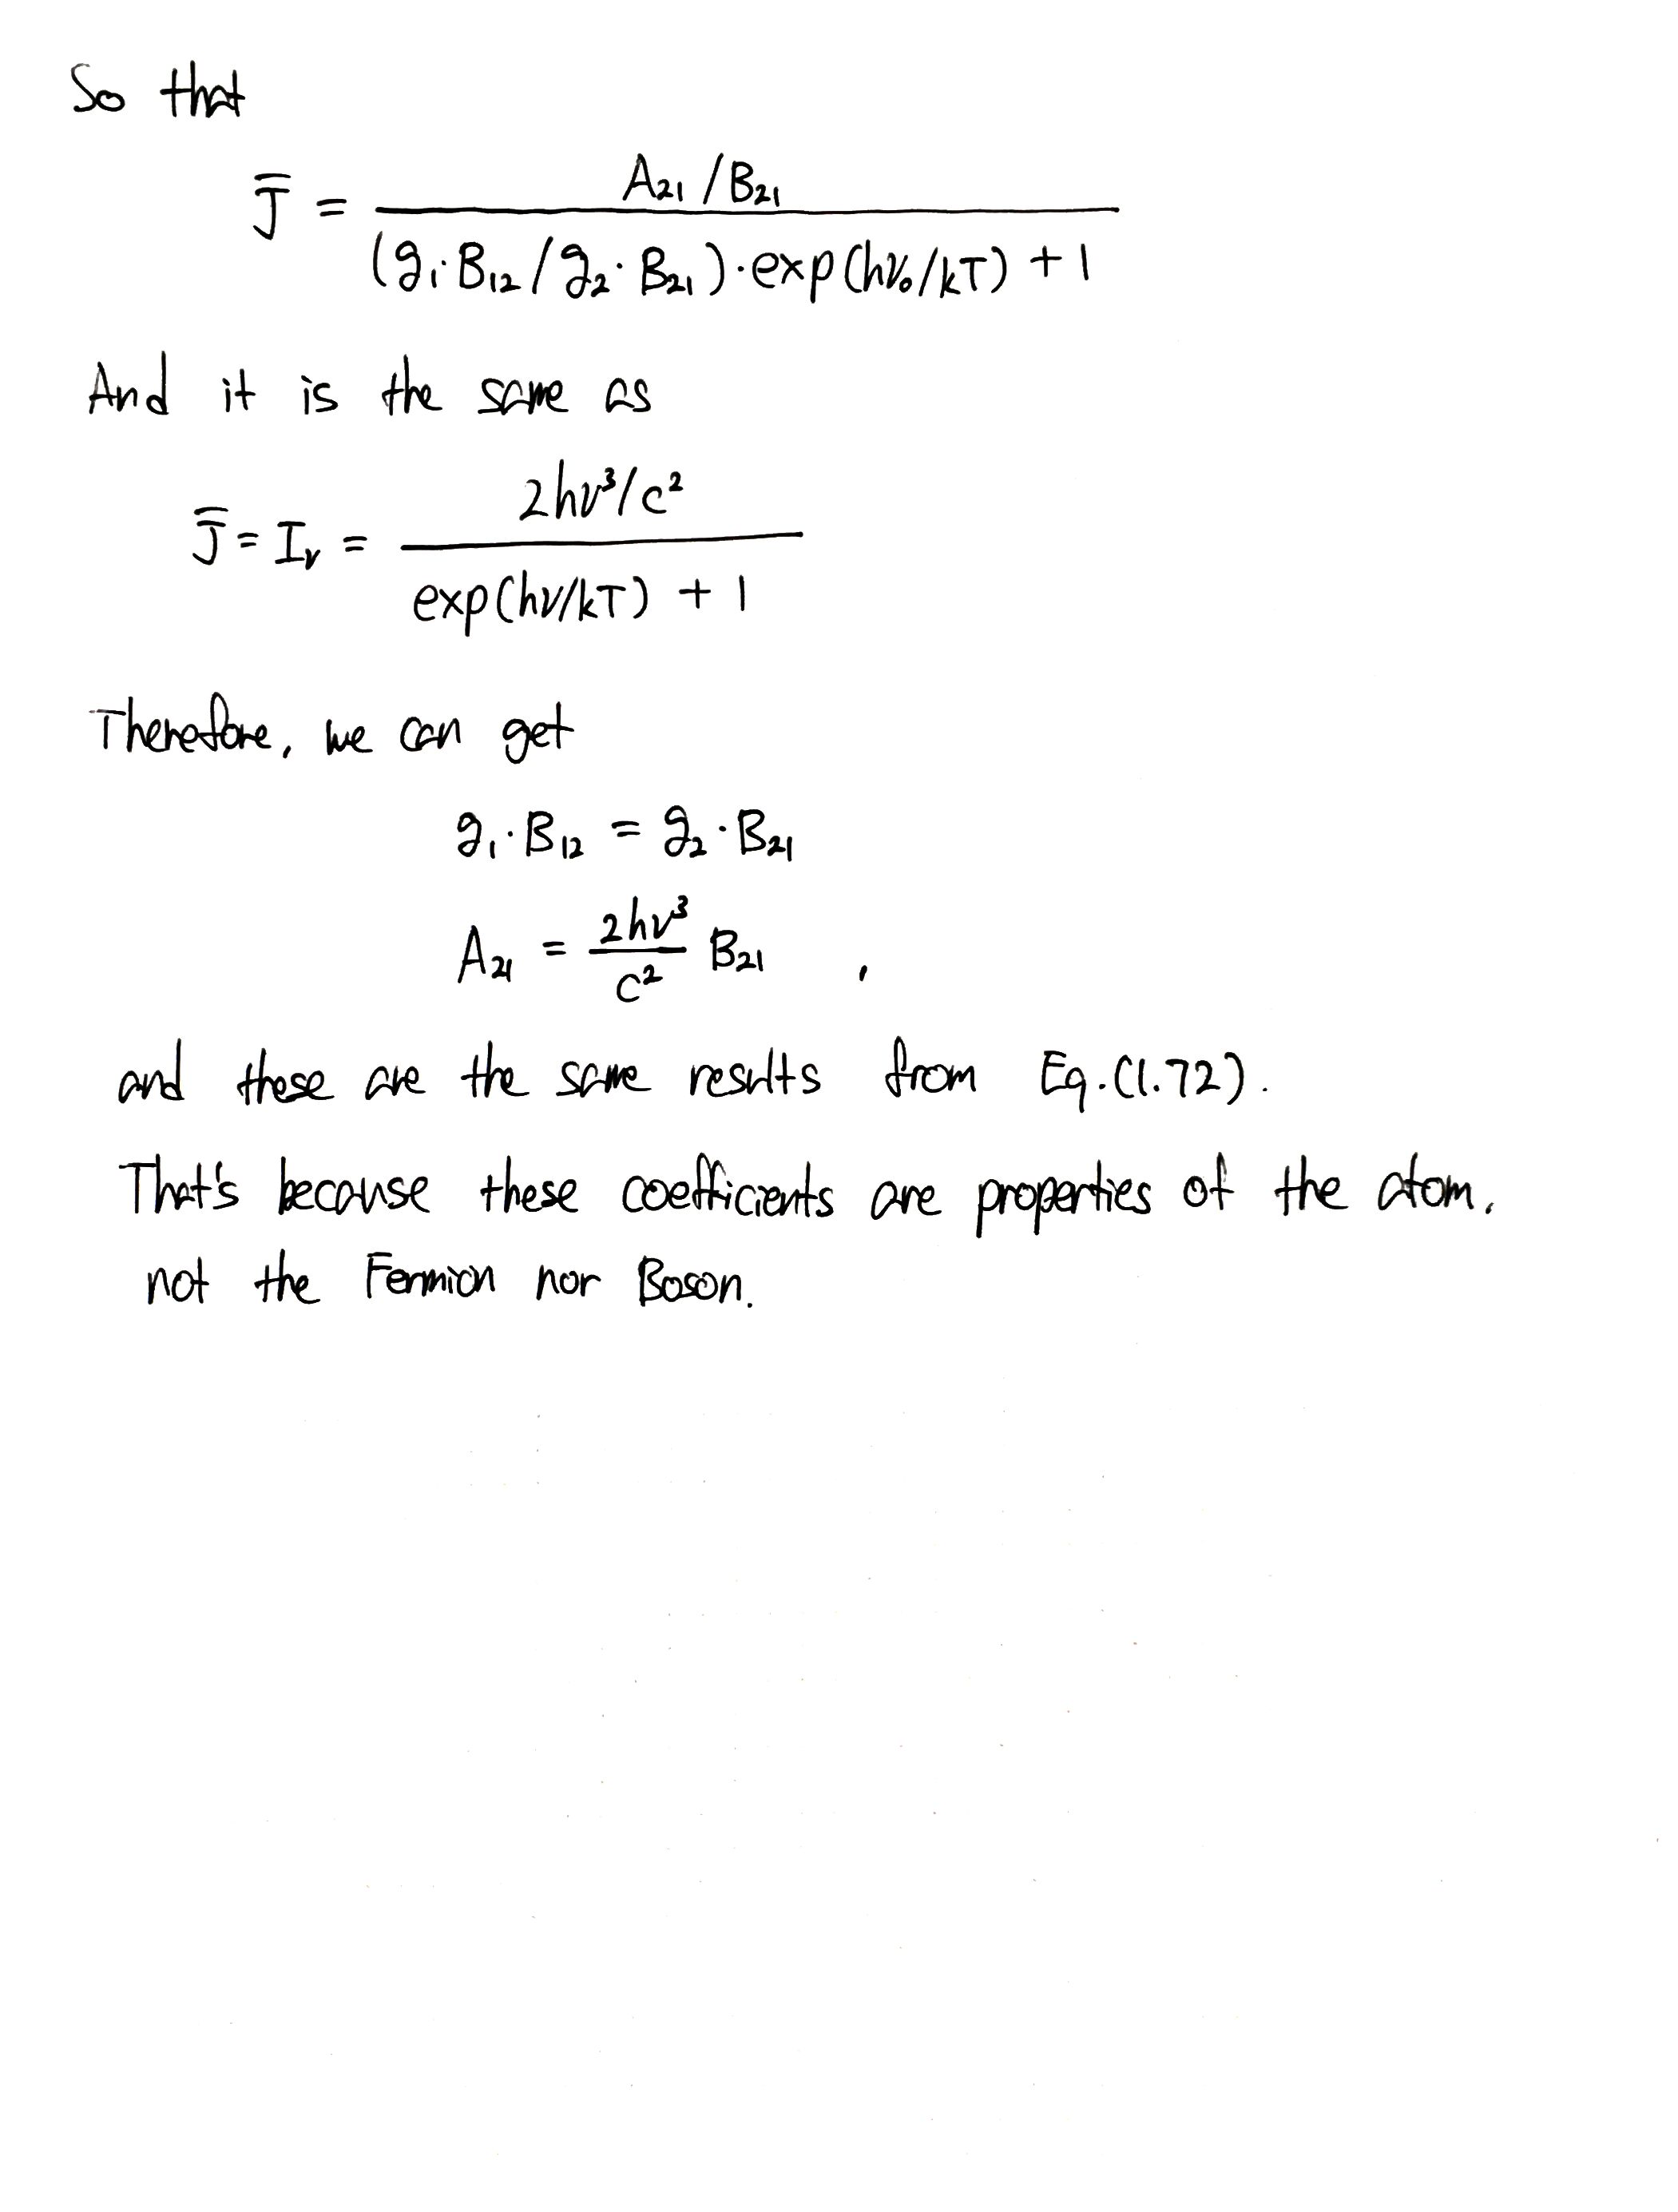 So that
J̄ = A₂₁ / B₂₁
(g₁·B₁₂ / g₂·B₂₁)·exp(hν₀/kT) + 1
And it is the same as
J̄ = Iᵥ = 2hν³/c²
exp(hν/kT) + 1
Therefore, we can get
g₁·B₁₂ = g₂·B₂₁
A₂₁ = 2hν³/c² B₂₁ ,
and these are the same results from Eq.(1.72).
That's because these coefficients are properties of the atom,
not the Fermion nor Boson.